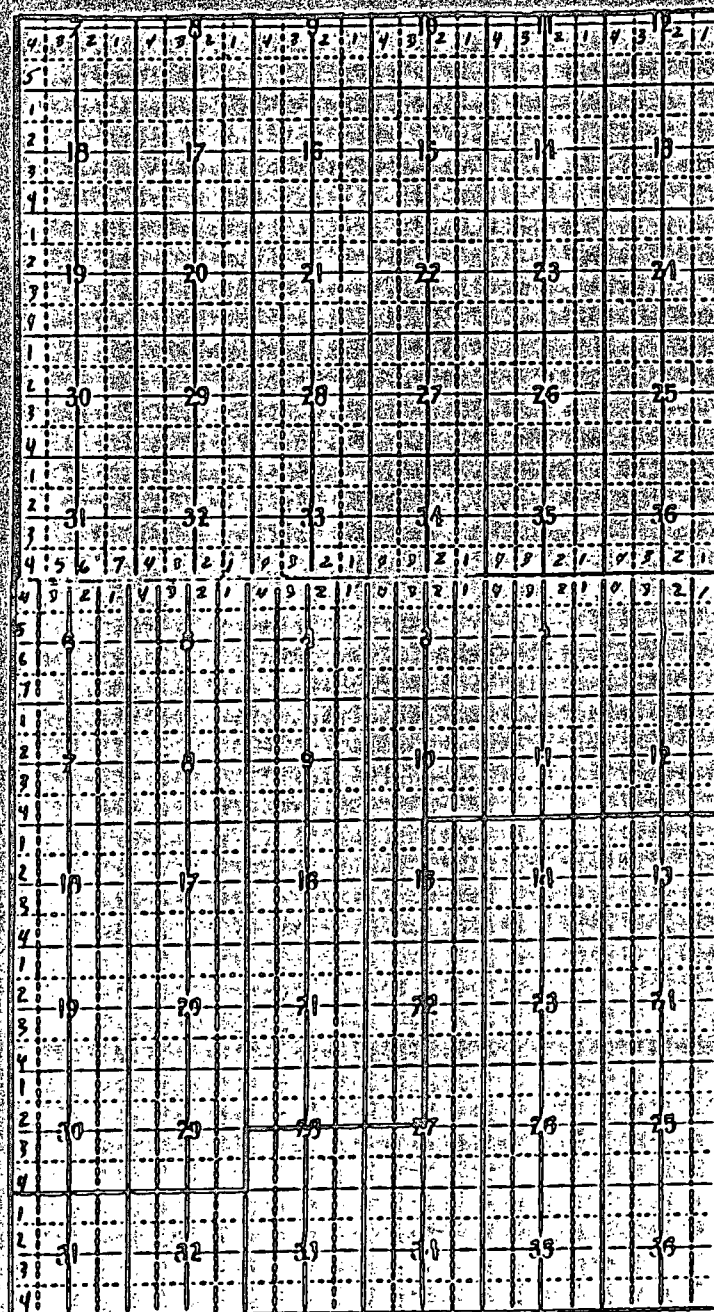 7 8 9 10 11 12
4 3 2 1 4 3 2 1 4 3 2 1 4 3 2 1 4 3 2 1 4 3 2 1
5
1
2 18 17 16 15 14 13
3
4
1
2 19 20 21 22 23 24
3
4
1
2 30 29 28 27 26 25
3
4
1
2 31 32 33 34 35 36
3
4 5 6 7 4 3 2 1 4 3 2 1 4 3 2 1 4 3 2 1 4 3 2 1
4 3 2 1 4 3 2 1 4 3 2 1 4 3 2 1 4 3 2 1 4 3 2 1
5
6
7
1
2 7 8 9 10 11 12
3
4
1
2 18 17 16 15 14 13
3
4
1
2 19 20 21 22 23 24
3
4
1
2 30 29 28 27 26 25
3
4
1
2 31 32 33 34 35 36
3
4